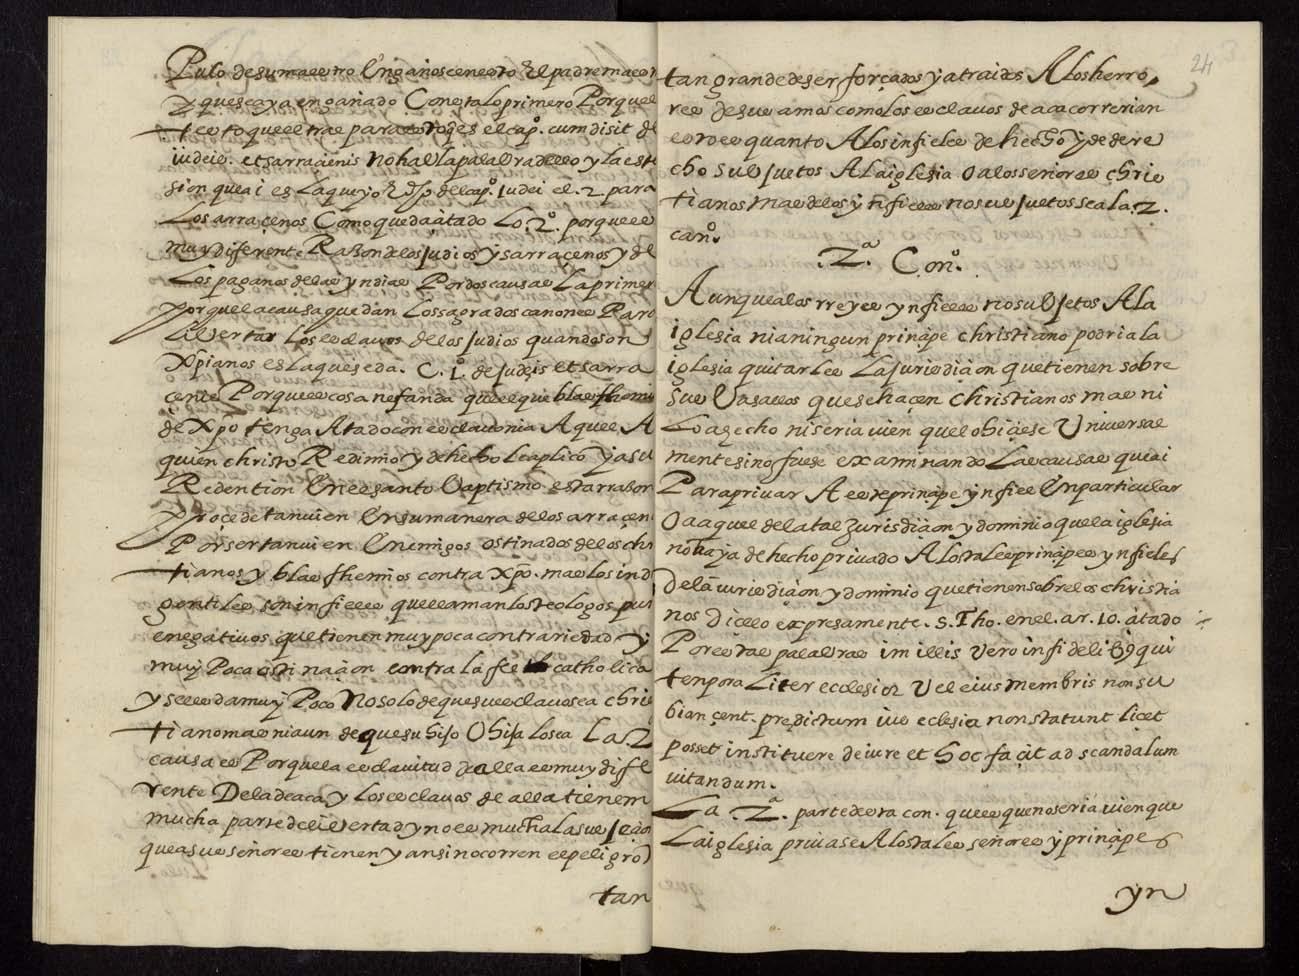 Pulo de su maestro Engañose en esto El padre maestro
y que se aya engañado Consta lo primero Porquel
testo quel trae para esto q̃ es el capº. cum disit de
iudeis. et sarracienis no habla palabra dello y la est
sion que ai es la que yo dixe del capº. Iudei el. 2 para
Los arraçenos Como queda çitado Lo. 2º. porque es
muy diferente Raçon de los judios y sarraçenos y de
Los paganos de las yndias Por dos causas La primer
porque la causa que dan Los sagrados canones Para
Livertar los esclavos de los judios quando son
Xp̃ianos es la que se da. C. 1º. de judeis et sarra
çenis Porque es cosa nefanda quel que blasfhemo
de Xp̃o tenga Atado con esclavonia A quel A
quien christo Redimio y de hecho le aplico ya su
Redention En el santo Baptismo esta rraçon
proçede tanvien En su manera de los arraçen
Por ser tanvien Enemigos ostinados de los chr
tianos y blasfhemos contra Xp̃o. mas los ind
gentiles son infieles que llaman los teologos pur
e negativos que tienen muy poca contrariedad y
muy Poca ostinaçion contra la fee catholica
y se les da muy Poco No solo de que su esclavo sea chris
tiano mas ni aun de que su hijo O hija lo sea La. 2
causa es Porque la esclavitud de alla es muy dife
rente De la de aca y Los esclavos de alla tienem
mucha parte de livertad y no es mucha la suvjeçion
que a sus señores tienen y ansi no corren el peligro
tan
24
tan grande de ser forçados y atraidos A los herro
res de sus amos como los esclavos de aca correrian
esto es quanto A los infieles de hecho y de dere
cho subjetos A la iglesia o a los señores chris
tianos mas de los ynfieles no subjetos sea la. 2.
conº.
.2ª. Conº.
Aunque a los rreyes ynfieles no subjetos A la
iglesia ni a ningun prinçipe christiano podria la
iglesia quitarles La jurisdiçion que tienen sobre
sus Vasallos que se haçen christianos mas ni
Lo a hecho ni seria vien quel o hiçiese Universal
mente sino fuese examinando Las causas que ai
Para privar A este prinçipe ynfiel En particular
O a aquel de la tal jurisdiçion y dominio que la iglesia
no haya de hecho privado A los tales prinçipes ynfieles
de la jurisdiçion y dominio que tienen sobre los christia
nos dicelo expresamente. S. Tho. en el. ar. 10. çitado
Por estas palabras in illis vero infidelibꝫ qui
temporaliter ecclesiæ vel eius membris non su
biaçent. prędictum ius eclesia non statuit licet
posset instituere de iure et hoc façit ad scandalum
vitandum.
La .2ª. parte desta con. que es que no seria vien que
La iglesia privase A los tales señores y prinçipes
yn